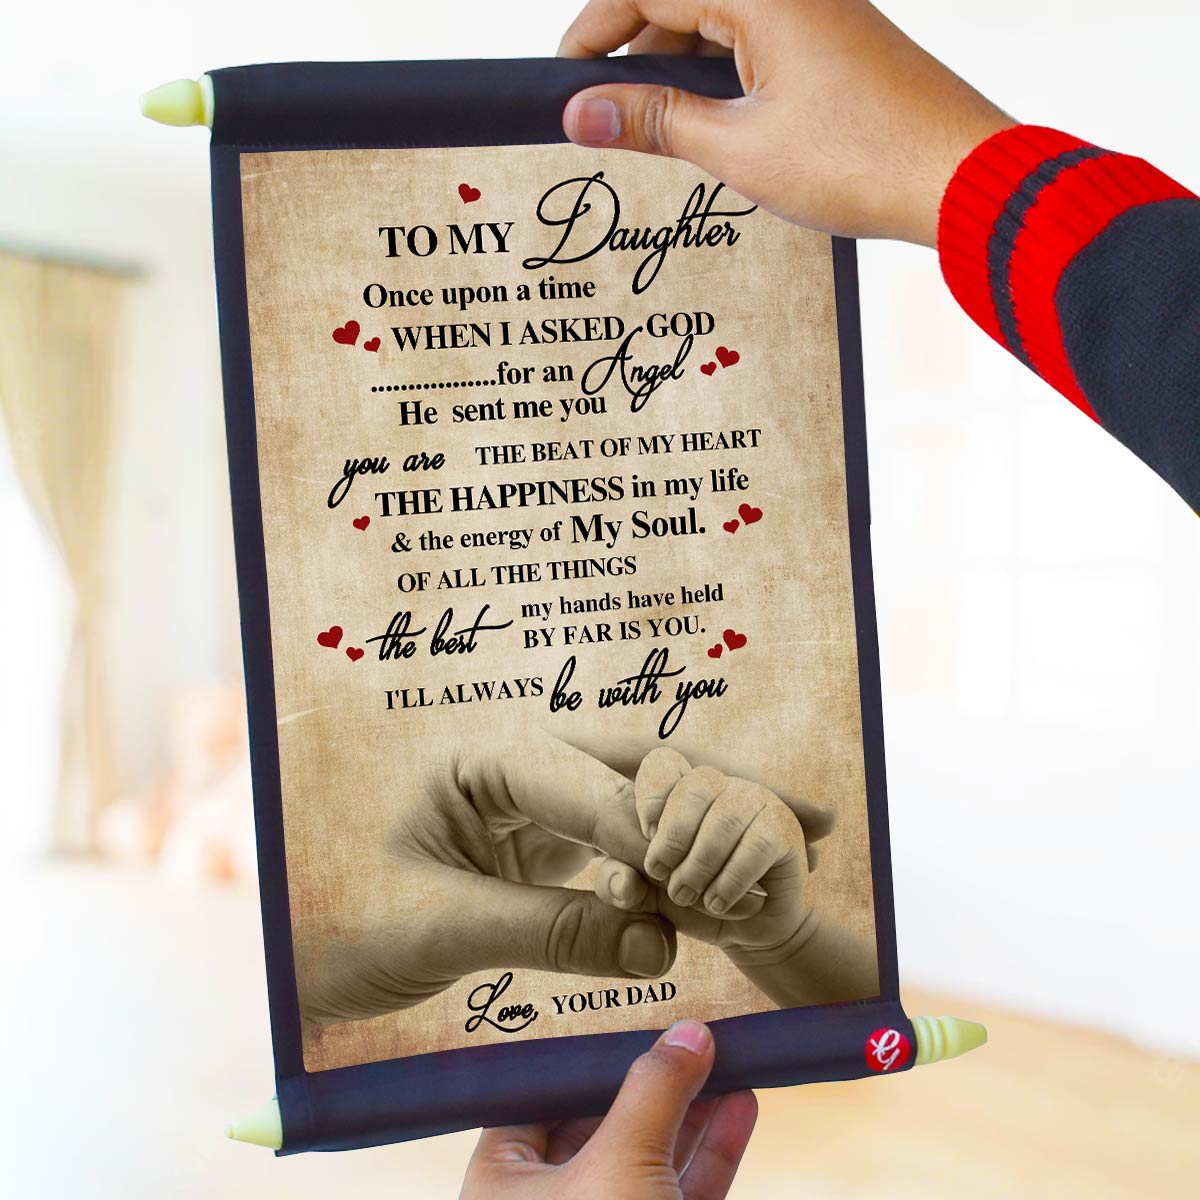 TO MY Daughter
Once upon a time
WHEN I ASKED GOD
..................for an Angel
He sent me you
you are THE BEAT OF MY HEART
THE HAPPINESS in my life
& the energy of My Soul.
OF ALL THE THINGS
the best my hands have held
BY FAR IS YOU.
I'LL ALWAYS be with you
Love, YOUR DAD